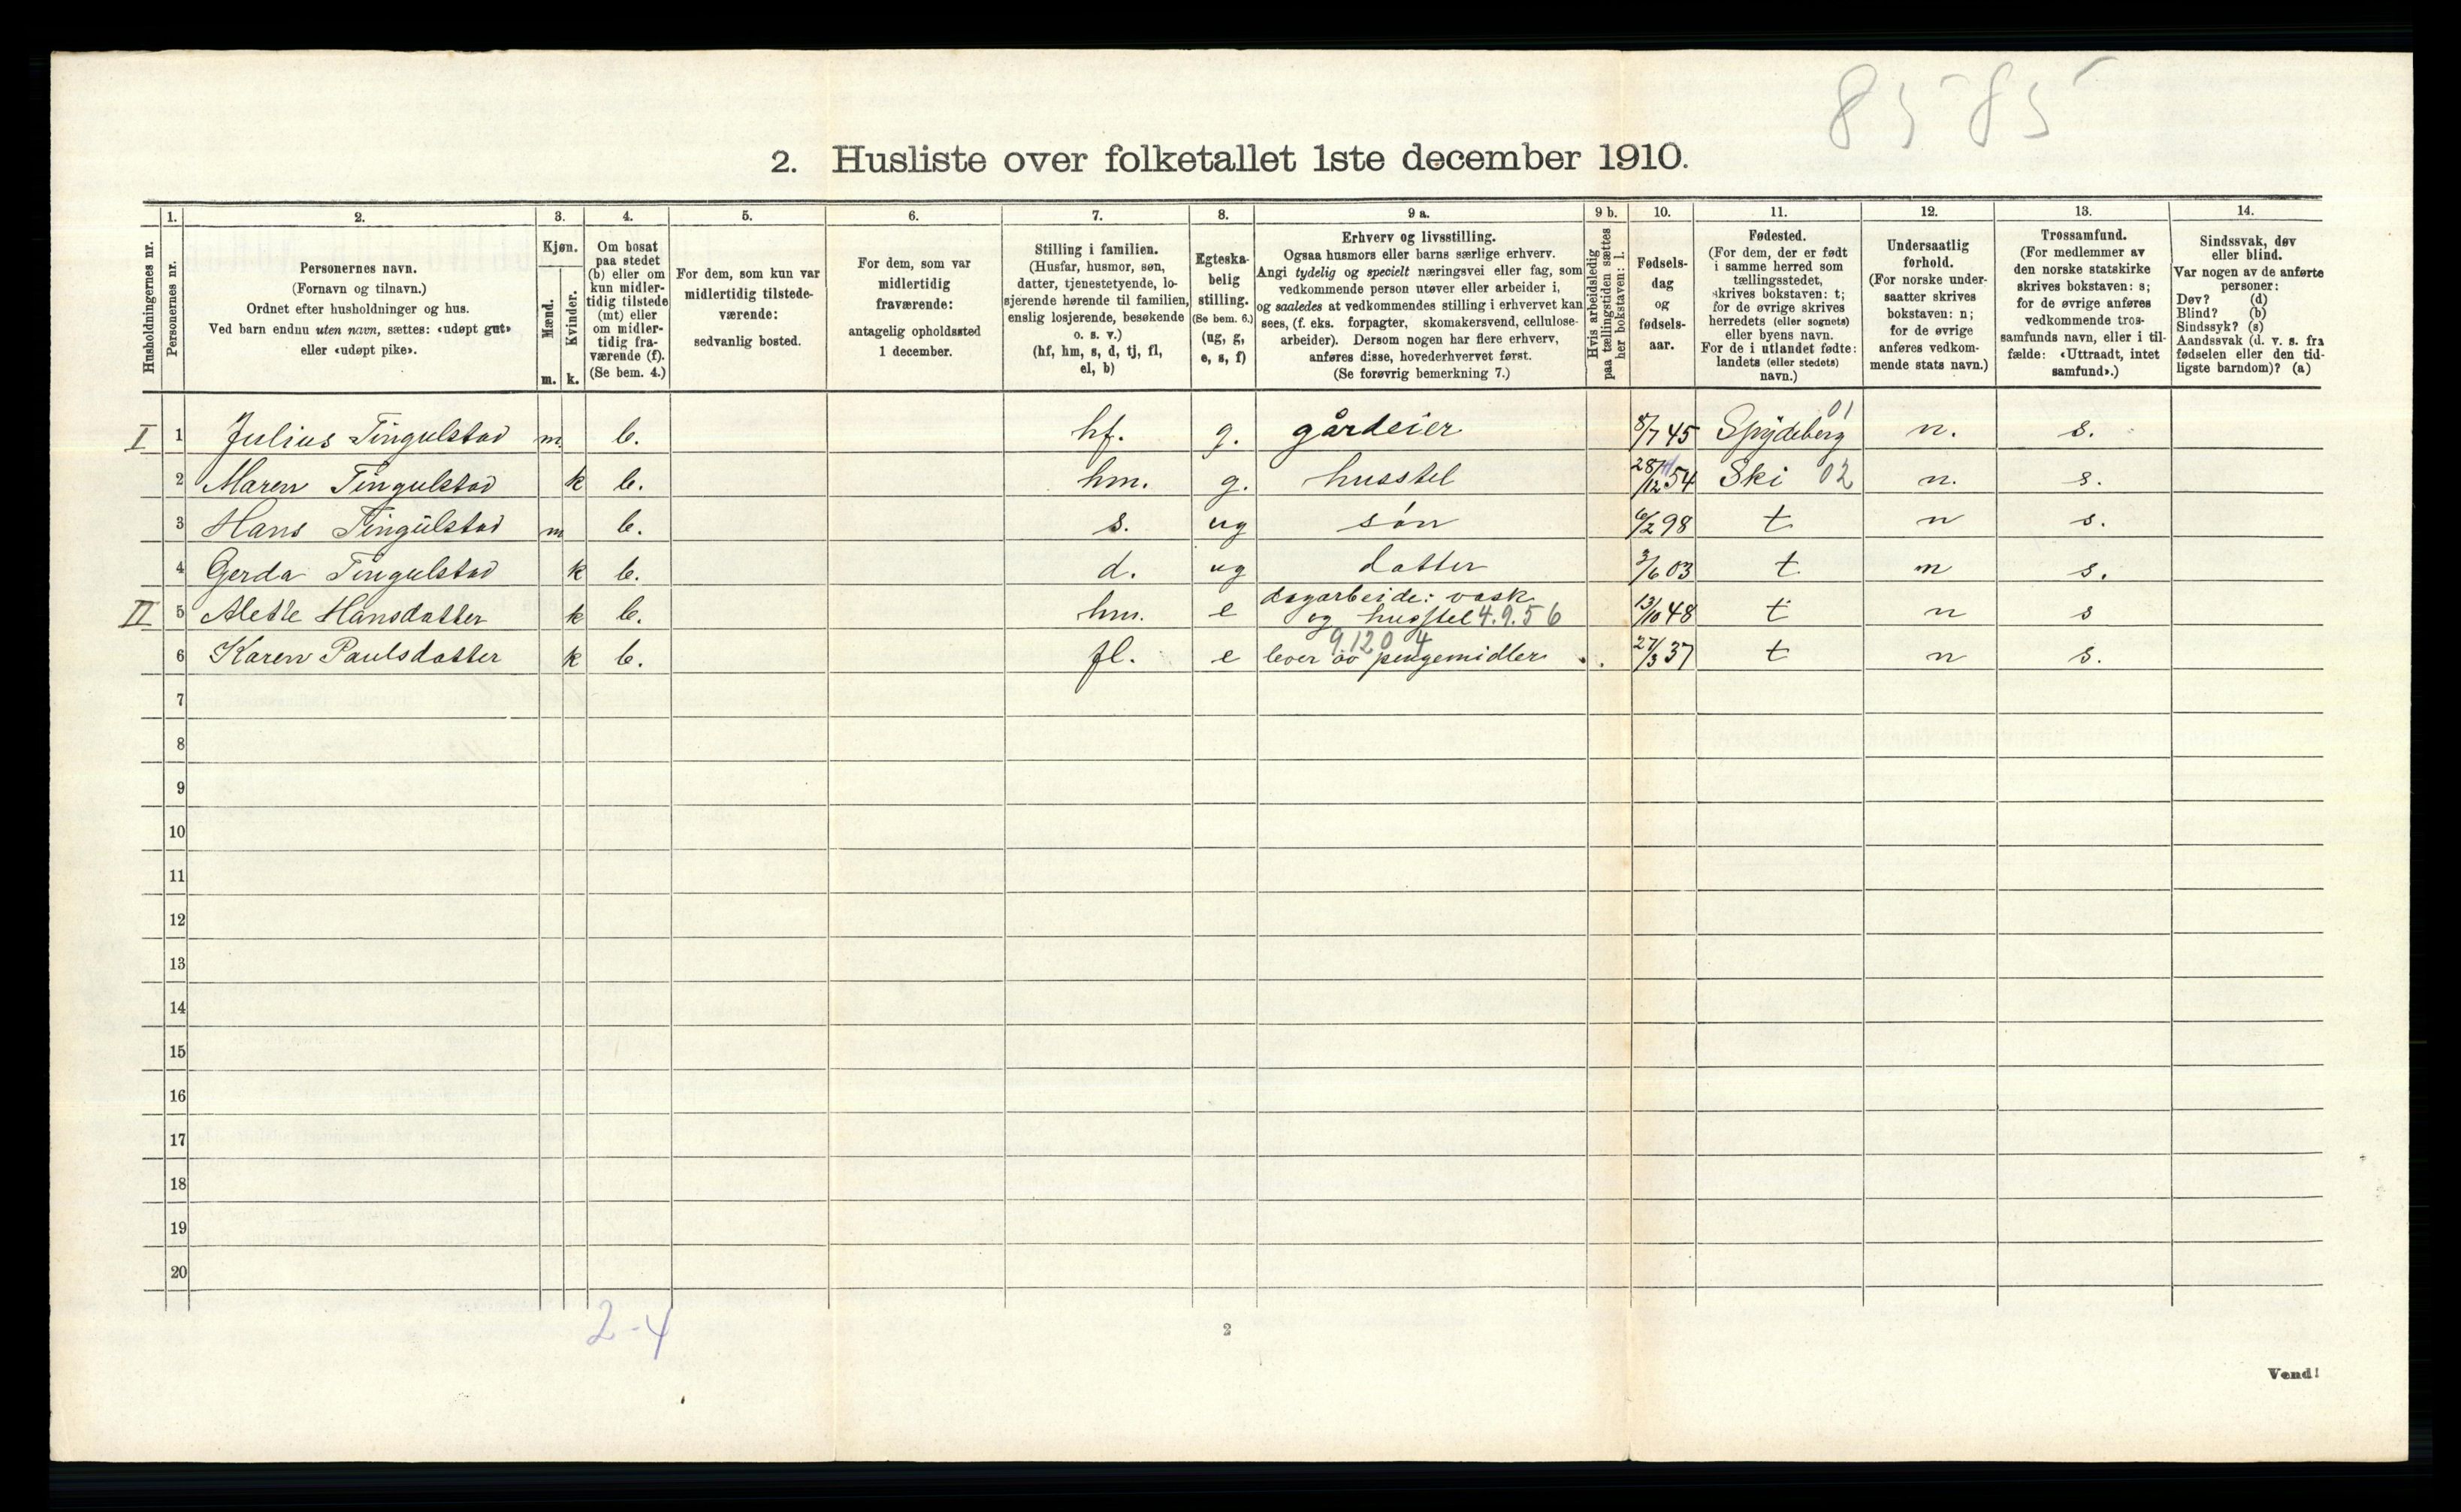 85 85
2. Husliste over folketallet 1ste december 1910.
Husholdningernes nr.
1. Personernes nr.
2. Personernes navn.
(Fornavn og tilnavn.)
Ordnet efter husholdninger og hus.
Ved barn endnu uten navn, sættes: «udøpt gut»
eller «udøpt pike».
3. Kjøn.
Mænd. Kvinder.
m. k.
4. Om bosat
paa stedet
(b) eller om
kun midler-
tidig tilstede
(mt) eller
om midler-
tidig fra-
værende (f).
(Se bem. 4.)
5. For dem, som kun var
midlertidig tilstede-
værende:
sedvanlig bosted.
6. For dem, som var
midlertidig
fraværende:
antagelig opholdssted
1 december.
7. Stilling i familien.
(Husfar, husmor, søn,
datter, tjenestetyende, lo-
sjerende hørende til familien,
enslig losjerende, besøkende
o. s. v.)
(hf, hm, s, d, tj, fl,
el, b)
8. Egteska-
belig
stilling.
(Se bem. 6.)
(ug, g,
e, s, f)
9 a. Erhverv og livsstilling.
Ogsaa husmors eller barns særlige erhverv.
Angi tydelig og specielt næringsvei eller fag, som
vedkommende person utøver eller arbeider i,
og saaledes at vedkommendes stilling i erhvervet kan
sees, (f. eks. forpagter, skomakersvend, cellulose-
arbeider). Dersom nogen har flere erhverv,
anføres disse, hovederhvervet først.
(Se forøvrig bemerkning 7.)
9 b. Hvis arbeidsledig
paa tællingstiden sættes
her bokstaven: l.
10. Fødsels-
dag
og
fødsels-
aar.
11. Fødested.
(For dem, der er født
i samme herred som
tællingsstedet,
skrives bokstaven: t;
for de øvrige skrives
herredets (eller sognets)
eller byens navn.
For de i utlandet fødte:
landets (eller stedets)
navn.)
12. Undersaatlig
forhold.
(For norske under-
saatter skrives
bokstaven: n;
for de øvrige
anføres vedkom-
mende stats navn.)
13. Trossamfund.
(For medlemmer av
den norske statskirke
skrives bokstaven: s;
for de øvrige anføres
vedkommende tros-
samfunds navn, eller i til-
fælde: «Uttraadt, intet
samfund».)
14. Sindssvak, døv
eller blind.
Var nogen av de anførte
personer:
Døv? (d)
Blind? (b)
Sindssyk? (s)
Aandssvak (d. v. s. fra
fødselen eller den tid-
ligste barndom)? (a)
I 1 Julius Tingulstad m b. hf. g. gårdeier 8/7 45 Spydeberg 01 n. s.
2 Maren Tingulstad k b. hm. g. husstel 28/12 54 Ski 02 n. s.
3 Hans Tingulstad m b. s. ug søn 6/2 98 t n s.
4 Gerda Tingulstad k b. d. ug datter 3/6 03 t n s.
II 5 Alette Hansdatter k b. hm. e dagarbeide: vask
og husstel 4.9.56 13/10 48 t n s
9120 4
6 Karen Paulsdatter k b. fl. e lever av pengemidler 27/3 37 t n s.
7
8
9
10
11
12
13
14
15
16
17
18
19
20
2-4
2
Vend!